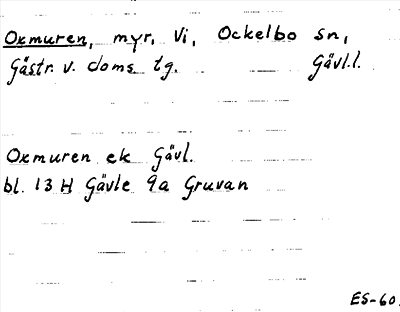 Oxmuren, myr, Vi, Ockelbo sn,
Gästr. v. doms. tg. Gävl.l.
Oxmuren ek Gävl.
bl. 13 H Gävle 9a Gruvan
ES-60.